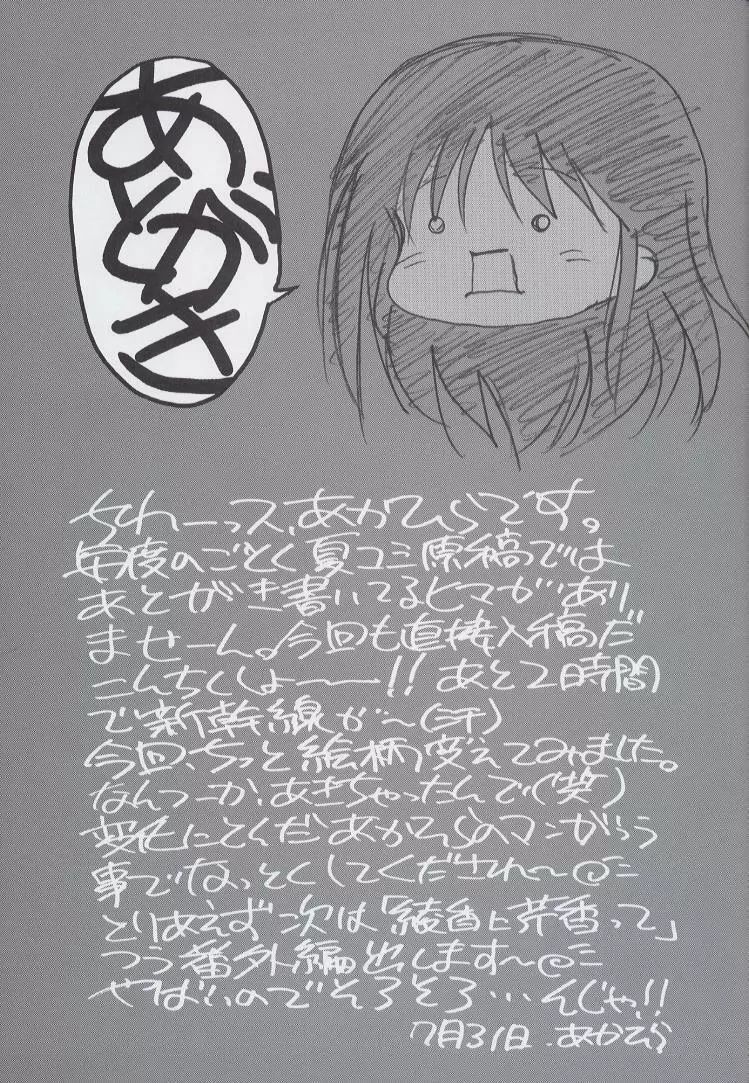 あとがき
ちわーっス、あかひらです。
毎度のごとく夏コミ原稿では
あとがき書いてるヒマがあり
ませーん。今回も直接入稿だ
こんちくしょー!! あと2時間
で新幹線が〜(汗)
今回、ちっと絵柄変えてみました。
なんつーか、あきちゃったんで(笑)
変化にとんだあかひらのマンがっつう
事でなっとくしてくだされ〜
とりあえず次は「綾香と芹香って」
つう番外編出します〜
やばいのでそろそろ…んじゃ!!
7月31日.あかひら